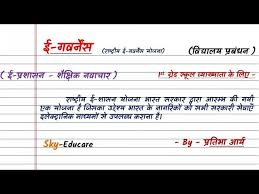 ई-गवर्नेंस (राष्ट्रीय ई-गवर्नेंस योजना) (विद्यालय प्रबंधन)
( ई-प्रशासन - शैक्षिक नवाचार ) 1st ग्रेड स्कूल व्याख्याता के लिए -
राष्ट्रीय ई-शासन योजना भारत सरकार द्वारा आरम्भ की गयी
एक योजना है जिसका उद्देश्य भारत के नागरिकों को सभी सरकारी सेवाएं
इलेक्ट्रानिक माध्यमों से उपलब्ध कराना है।
Sky-Educare - By - प्रतिभा आर्य